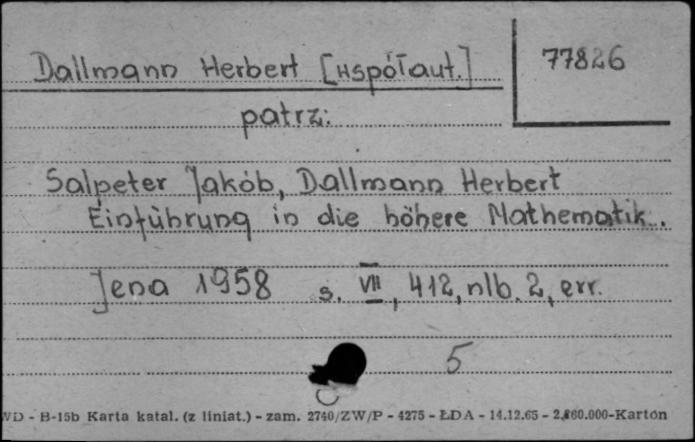 Dallmann Herbert [współaut.]
77826
patrz:
Salpeter Jakób, Dallmann Herbert
Einführung in die höhere Mathematik.
Jena 1958 s. VII, 412, nlb. 2, err.
5
WD - B-15b Karta katal. (z liniat.) - zam. 2740/ZW/P - 4275 - ŁDA - 14.12.65 - 2.860.000-Karton